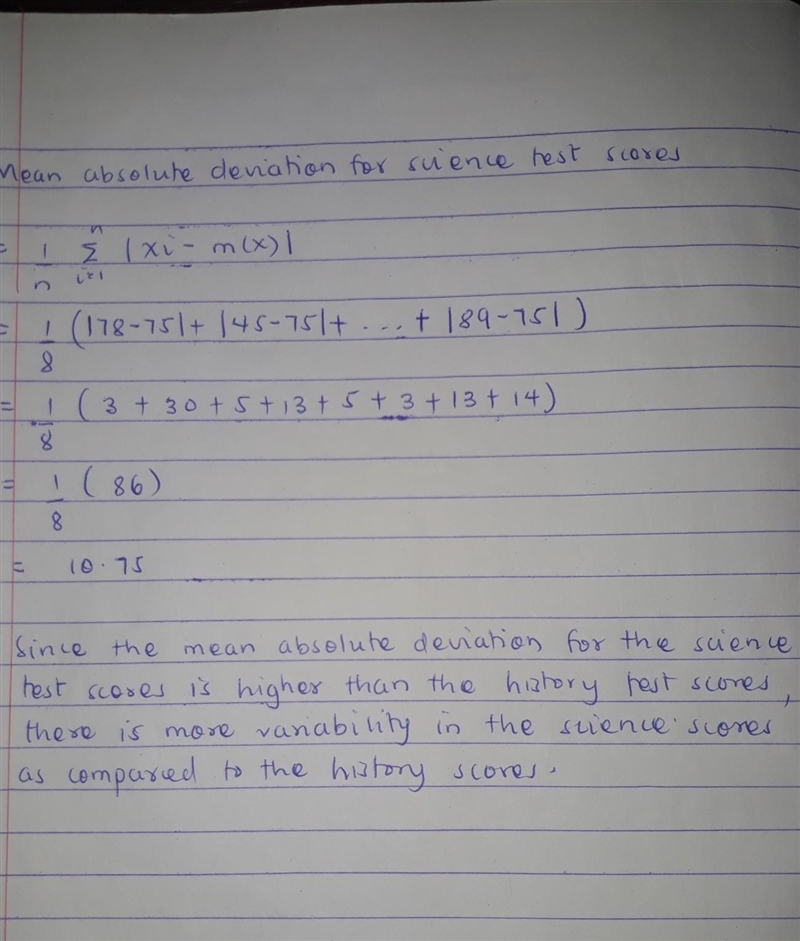 Mean absolute deviation for science test scores
= 1/n n Σ i=1 |xi - m(x)|
= 1/8 (|78-75| + |45-75| + .... + |89-75|)
= 1/8 (3 + 30 + 5 + 13 + 5 + 3 + 13 + 14)
= 1/8 (86)
= 10.75
Since the mean absolute deviation for the science
test scores is higher than the history test scores,
there is more variability in the science scores
as compared to the history scores.